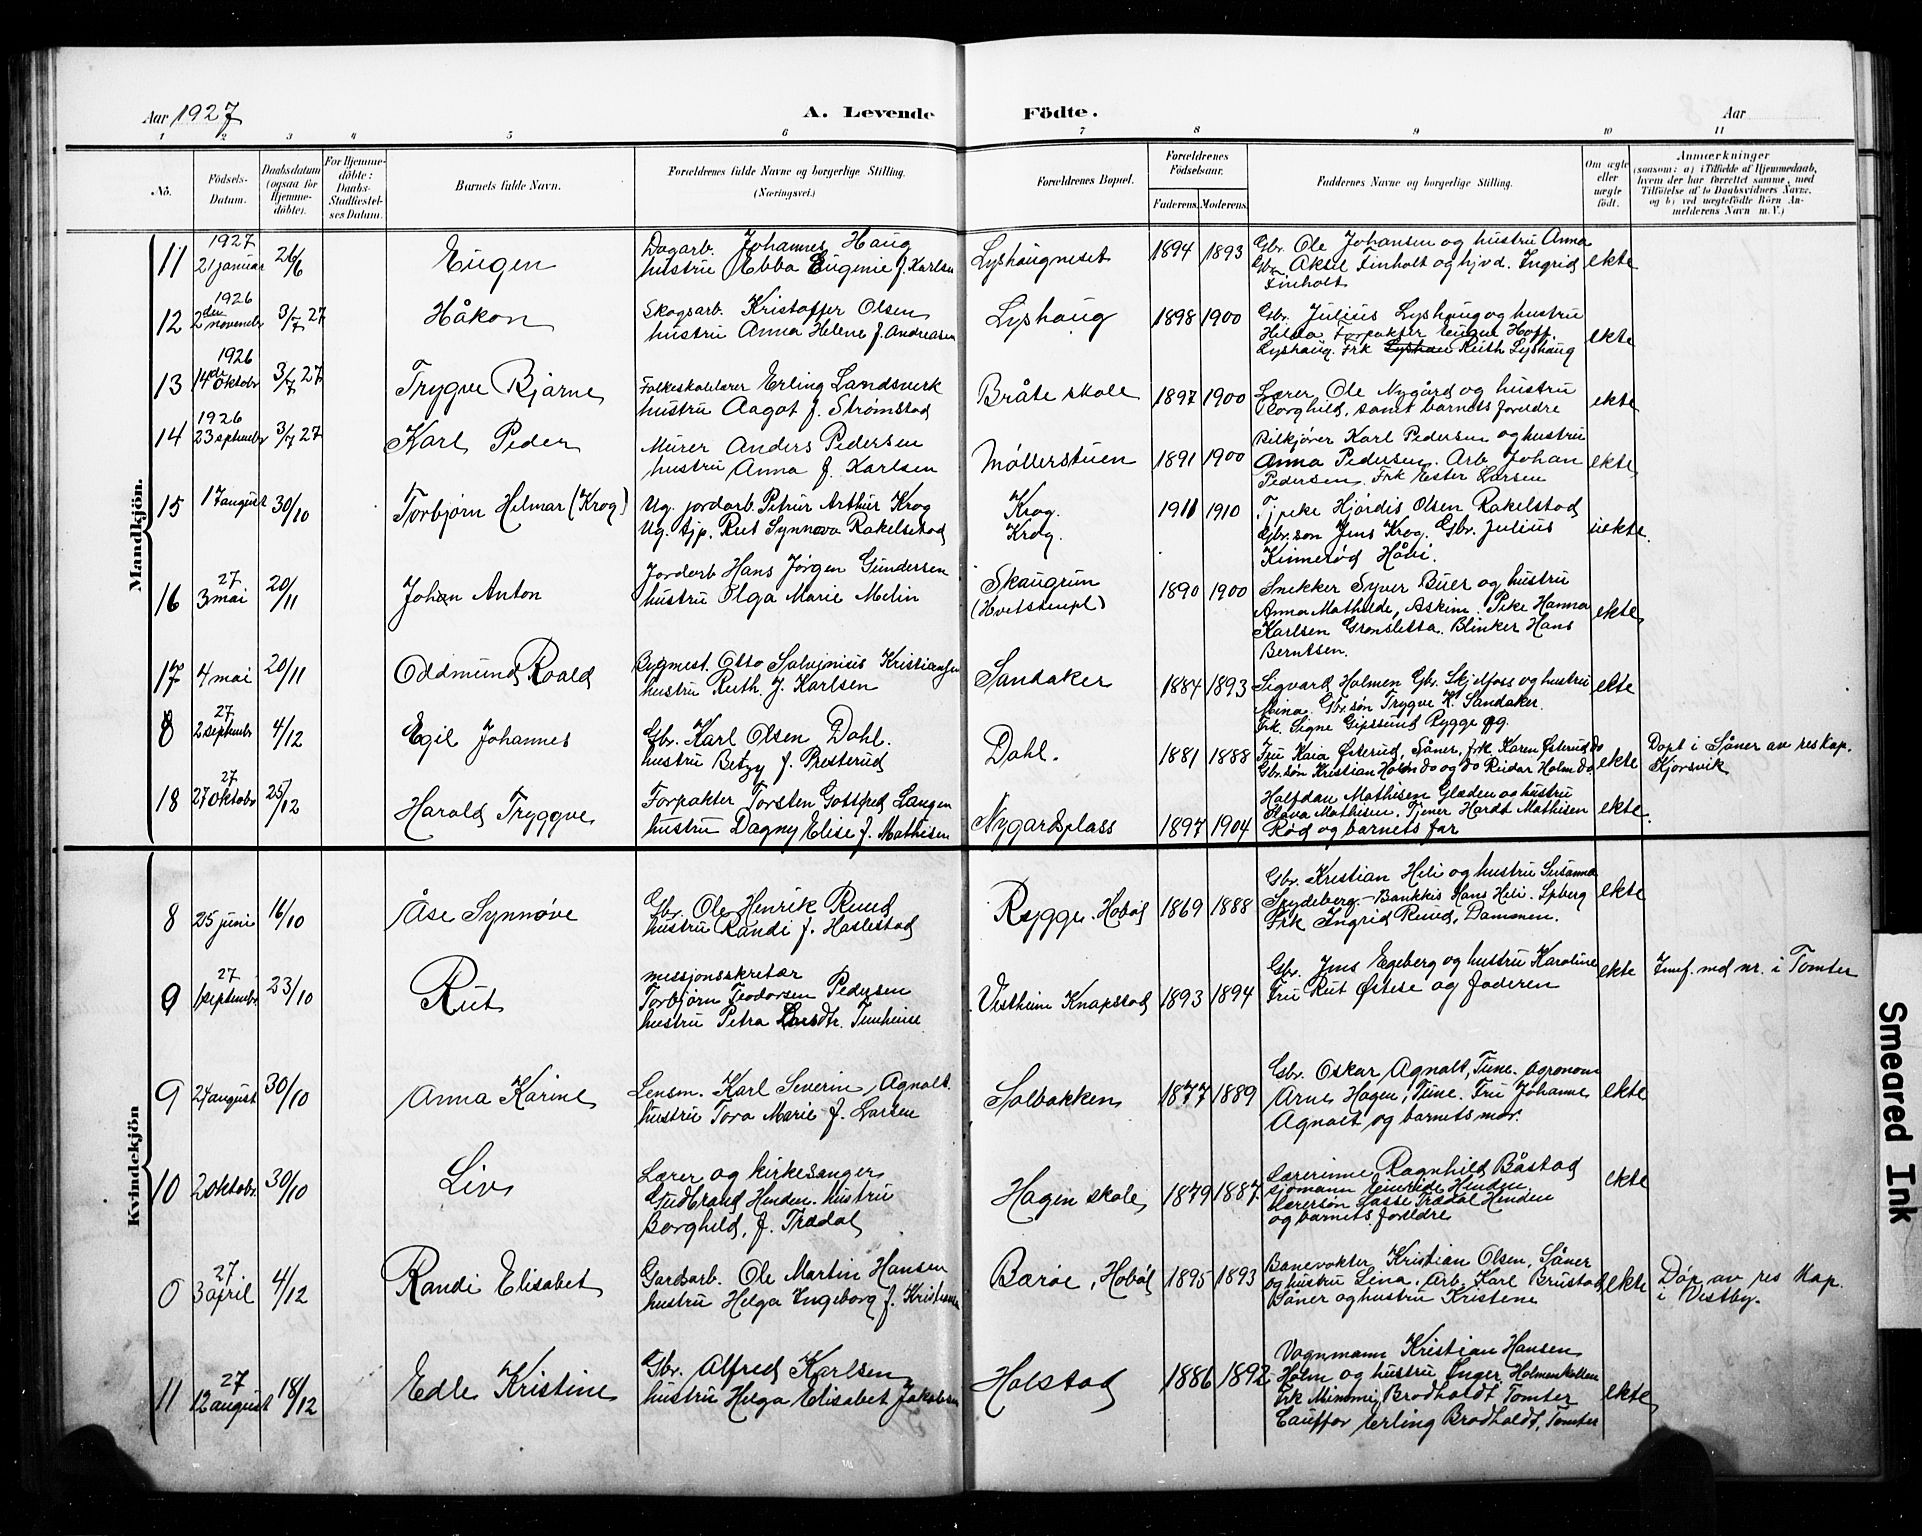 Aar 1927 A. Levende Födte. Aar
1 2 3 4 5 6 7 8 9 10 11
No. Födsels-Datum. Daabsdatum (ogsaa for Hjemmedöbte). For Hjemmedöbte: Daabs-Stadfæstelses Datum. Barnets fulde Navn. Forældrenes fulde Navne og borgerlige Stilling. (Næringsvei.) Forældrenes Bopæl. Forældrenes Födselsaar. Faderens. Moderens. Faddernes Navne og borgerlige Stilling. Om ægte eller uægte födt. Anmærkninger (saasom: a) i Tilfælde af Hjemmedaab, hvem der har forrettet samme, med Tilföielse af to Daabsvidners Navne, og b) ved uægtefödte Börn Anmelderens Navn m. V.)
Mandkjön.
11 1927 21 januar 26/6 Eugen Dagarb. Johannes Haug
hustru Ebba Eugenie f. Karlsen Lyshaugneset 1894 1893 Gbr. Ole Johansen og hustru Anna
Gbr. Aksel Finholt og hjvd. Ingrid
Finholt ekte
12 1926 2den novembr 3/7 27 Håkon Skogsarb. Kristoffer Olsen
hustru Anna Helene f. Andreasen Lyshaug 1898 1900 Gbr. Julius Lyshaug og hustru
Hilda Forpakter Eugen Hoff
Lyshaug. Frk Ruth Lyshaug ekte
13 1926 14de oktobr 3/7 27 Trygve Bjarne Folkeskolelærer Erling Landsverk
hustru Aagot f. Strømstad Bråte skole 1897 1900 Lærer Ole Nygård og hustru
Borghild, samt barnets foreldre ekte
14 1926 23 septembr 3/7 27 Karl Peder Murer Anders Pedersen
hustru Anna f. Karlsen Møllerstuen 1891 1900 Bilkjører Karl Pedersen og hustru
Anna Pedersen. Arb Johan
Pedersen. Frk Ester Larsen ekte
15 17 august 30/10 Torbjørn Helmar (Krog) Ug. jordarb. Petrus Arthur Krog
Ug. tjp. Rut Synnøva Rakelstad Krog.
Krog. 1911 1910 Tjpike Hjørdis Olsen Rakelstad
Gbr.søn Jens Krog. Gbr. Julius
Kinnerød Håbi. uekte.
16 27 3 mai 20/11 Johan Anton Jordarb Hans Jørgen Gundersen
hustru Olga Marie Melin Skaugrun
(Hvitstenpl) 1890 1900 Snekker Syver Buer og hustru
Anna Mathilde, Askim. Pike Hanna
Karlsen Grønsletta. Blinker Hans
Berntsen. ekte
17 4 mai 20/11 Oddmund Roald Bygmest. Otto Salvinius Kristiansen
hustru Ruth f. Karlsen Sandaker 1884 1893 Sigvard Holmen Gbr. Skjelfoss og hustru
Mina. Gbr.søn Trygve K. Sandaker.
Frk. Signe Gipssund Rygge pg. ekte
8 27 2 septembr 4/12 Egil Johannes Gbr. Karl Olsen Dahl.
hustru Betzy f. Presterud Dahl. 1881 1888 Fru Kaia Østerud, Såner, frk Karen Østerud do
Gbr.søn Kristian Holm do og do Reidar Holm do ekte Døpt i Såner av res kap.
Kjorsvik
18 27 27 oktobr 25/12 Harald Tryggve Forpakter Torsten Gottfred Langen
hustru Dagny Elise f. Mathisen Nygardsplass 1897 1904 Halfdan Mathisen Glæden og hustru
Klara Mathisen. Tjener Hardt Mathisen
Rød og barnets far ekte.
Kvindekjön
8 25 juni 16/10 Åse Synnøve Gbr. Ole Henrik Ruud
hustru Randi f. Haslestad Rygge. Hobøl 1869 1888 Gbr. Kristian Heli og hustru Susanna
Spydeberg. - Bankkis Hans Heli. Spberg
Frk Ingrid Ruud, Dammen. ekte
9 27 1 septembr 23/10 Rut messjonssekretær
Torbjørn Teodorsen Pedersen
hustru Petra Larsdtr. Tunheime Vestheim Knapstad 1893 1894 Gbr. Jens Egeberg og hustru Karoline
Fru Rut Østese og faderen ekte Innf. med nr. i Tomter
9 24 august 30/10 Anna Karine Lensm. Karl Severin Agnalt.
hustru Tora Marie f. Larsen Solbakken 1877 1889 Gbr. Oskar Agnalt, Tune. agronom
Arne Hagen, Tune. Fru Johanne
Agnalt og barnets mor. ekte
10 2 oktobr. 30/10 Liv Lærer og kirkesanger
Gudbrand Henden. hustru
Borghild, f. Trædal Hagen skole 1879 1887 Lærerinne Ragnhild Båstad
sjømann Einride Henden.
Lærersøn Lasse Trædal Henden
og barnets foreldre ekte
0 27 3 april 4/12 Randi Elisabet Gardsarb. Ole Martin Hansen
hustru Helga Ingeborg f. Kristiansen Barøe, Hobøl 1895 1893 Banevokter Kristian Olsen, Såner
og hustru Lina. Arb. Karl Brustad
Såner og hustru Kristene ekte Døp. av res kap.
i Vestby.
11 27 12 august 18/12 Edle Kristine Gbr. Alfred Karlsen
hustru Helga Elisabet Jakobsen Holstad 1886 1892 Vognmann Kristian Hansen
Holm og hustru Inger, Holmenkollen
Frk Mimmi Brodholdt, Tomter
Cauffør Erling Brodholdt, Tomter ekte
Smeared Ink